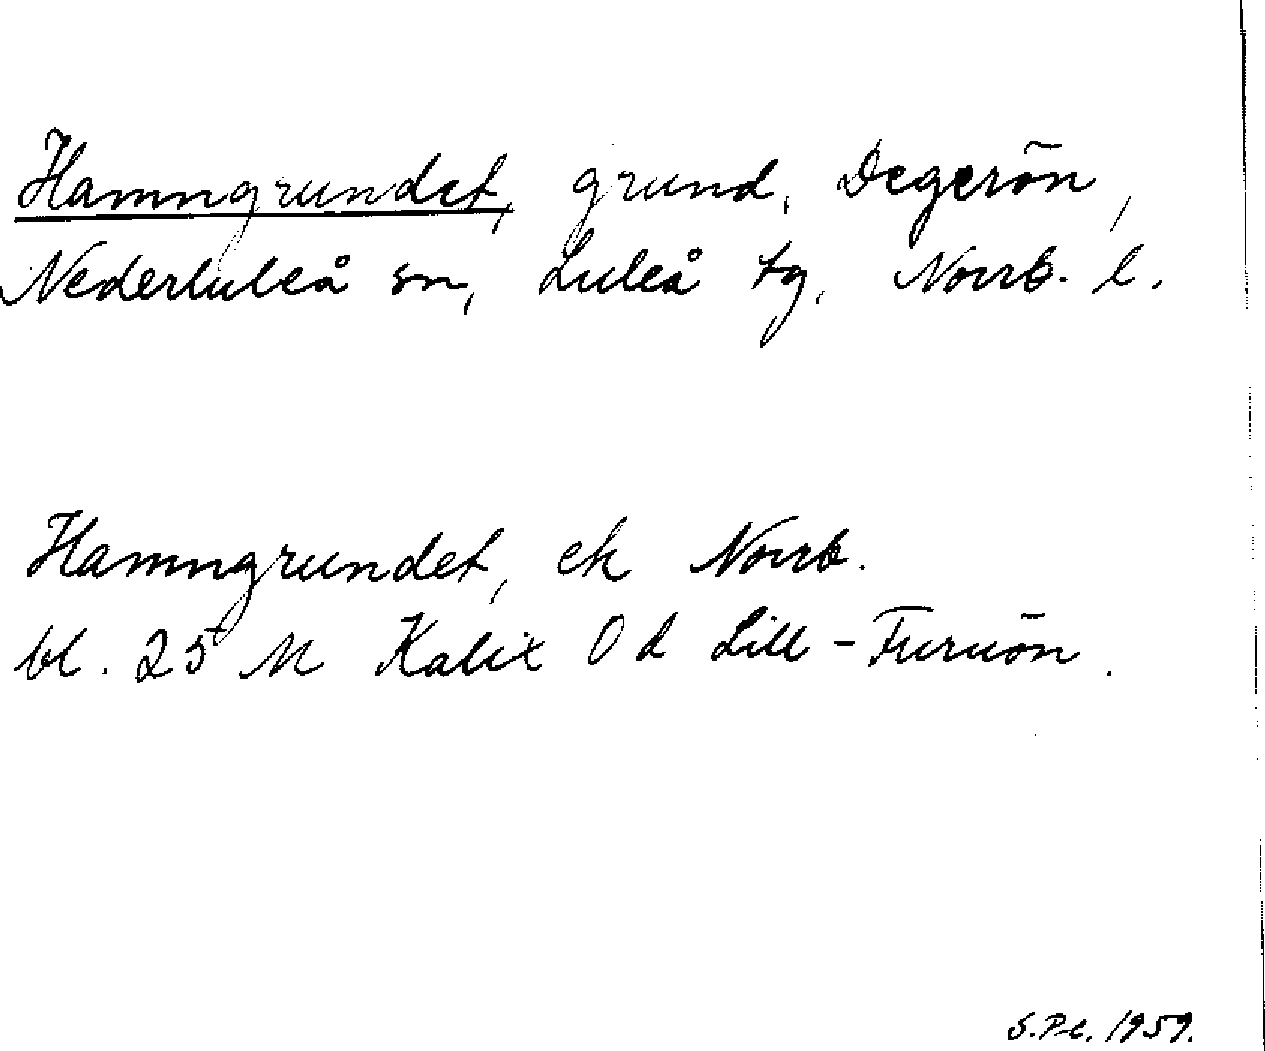 Hamngrundet, grund, Degerön,
Nederluleå sn, Luleå tg, Norrb. l.
Hamngrundet, ek Norrb.
bl. 25 M Kalix Od Lill-Furuön.
S.P-e. 1959.